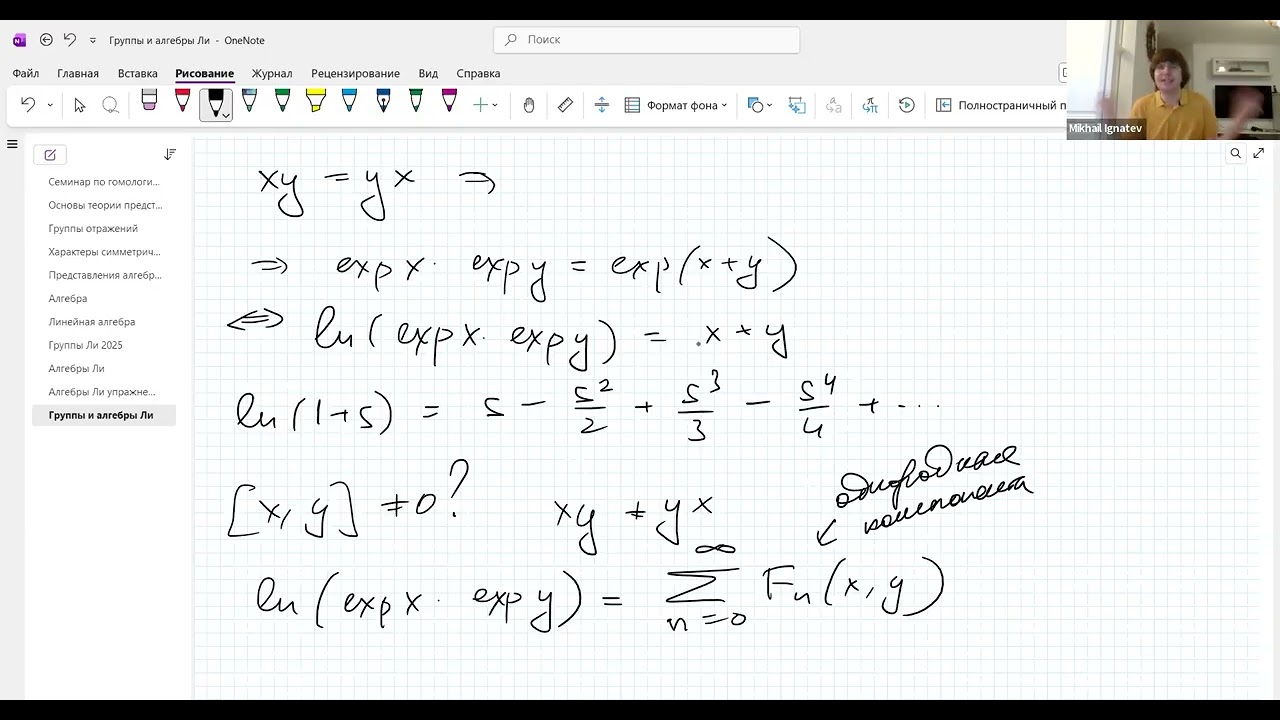 Группы и алгебры Ли - OneNote
Поиск
Файл Главная Вставка Рисование Журнал Рецензирование Вид Справка
Формат фона
Полностраничный п
Mikhail Ignatev
Семинар по гомологи...
Основы теории предст...
Группы отражений
Характеры симметрич...
Представления алгебр...
Алгебра
Линейная алгебра
Группы Ли 2025
Алгебры Ли
Алгебры Ли упражне...
Группы и алгебры Ли
xy = yx ⇒
⇒ exp x · exp y = exp(x+y)
⇔ ln(exp x · exp y) = x + y
ln(1+s) = s - s²/2 + s³/3 - s⁴/4 + ...
[x, y] ≠ 0? xy ≠ yx
однородная
компонента
↙
ln(exp x · exp y) = ∑_{n=0}^{∞} Fₙ(x, y)